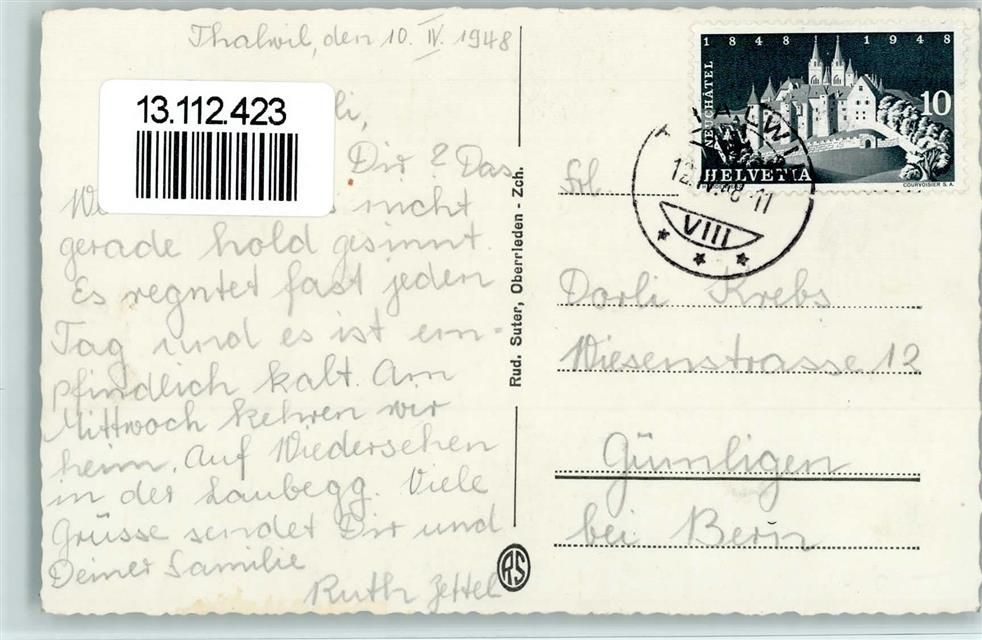 Thalwil, den 10. IV. 1948
13.112.423
li,
Dir? Das
nicht
gerade hold gesinnt.
Es regntet fast jeden
Tag und es ist em-
pfindlich kalt. Am
Mittwoch kehren wir
heim. Auf Wiedersehen
in der Laubegg. Viele
Grüsse sendet Dir und
Deiner Familie
Ruth Zettel
Rud. Suter, Oberrieden - Zch.
RS
1848 1948
NEUCHÂTEL
10
HELVETIA
COURVOISIER S.A.
THALWIL
12.IV.48-11
VIII
Frl.
Dorli Krebs
Wiesenstrasse 12
Gümligen
bei Bern